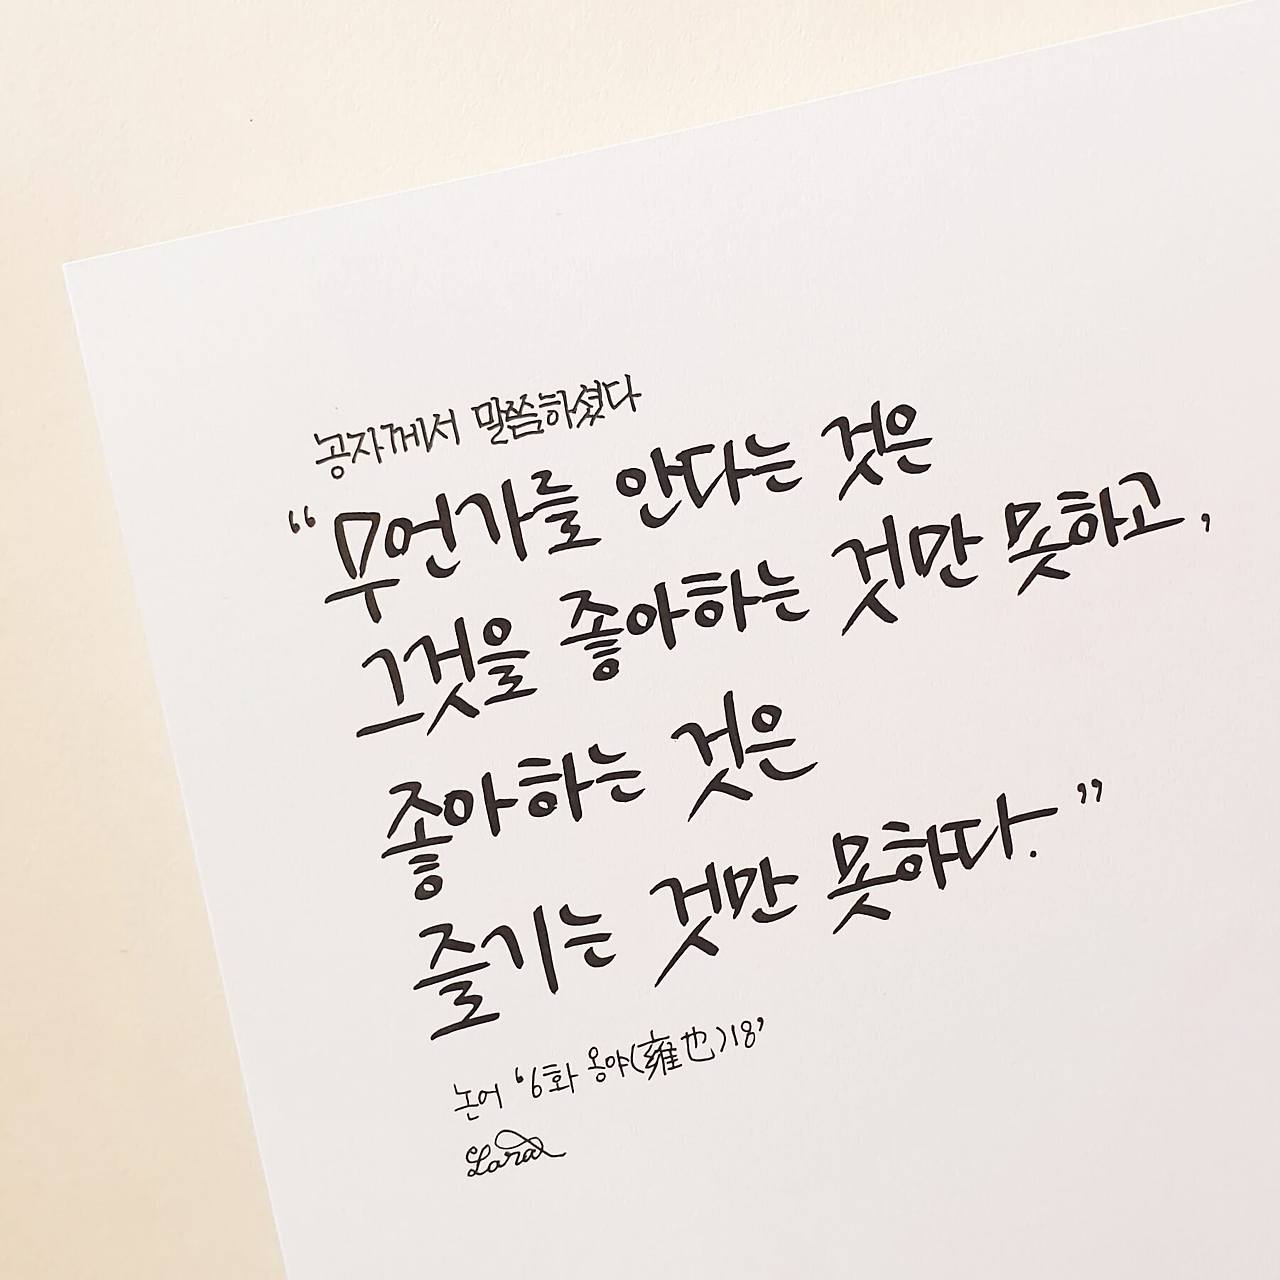 공자께서 말씀하셨다
“무언가를 안다는 것은
그것을 좋아하는 것만 못하고,
좋아하는 것은
즐기는 것만 못하다.”
논어 ‘6화 옹야(雍也)18’
Lara